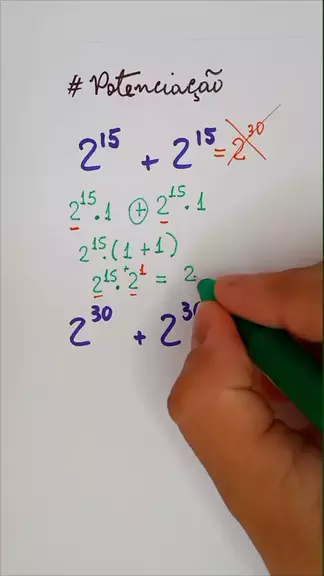 # Potenciação
2¹⁵ + 2¹⁵ = 2³⁰
2¹⁵ · 1 + 2¹⁵ · 1
2¹⁵ · (1 + 1)
2¹⁵ ·⁺ 2¹ = 2
2³⁰ + 2³⁰